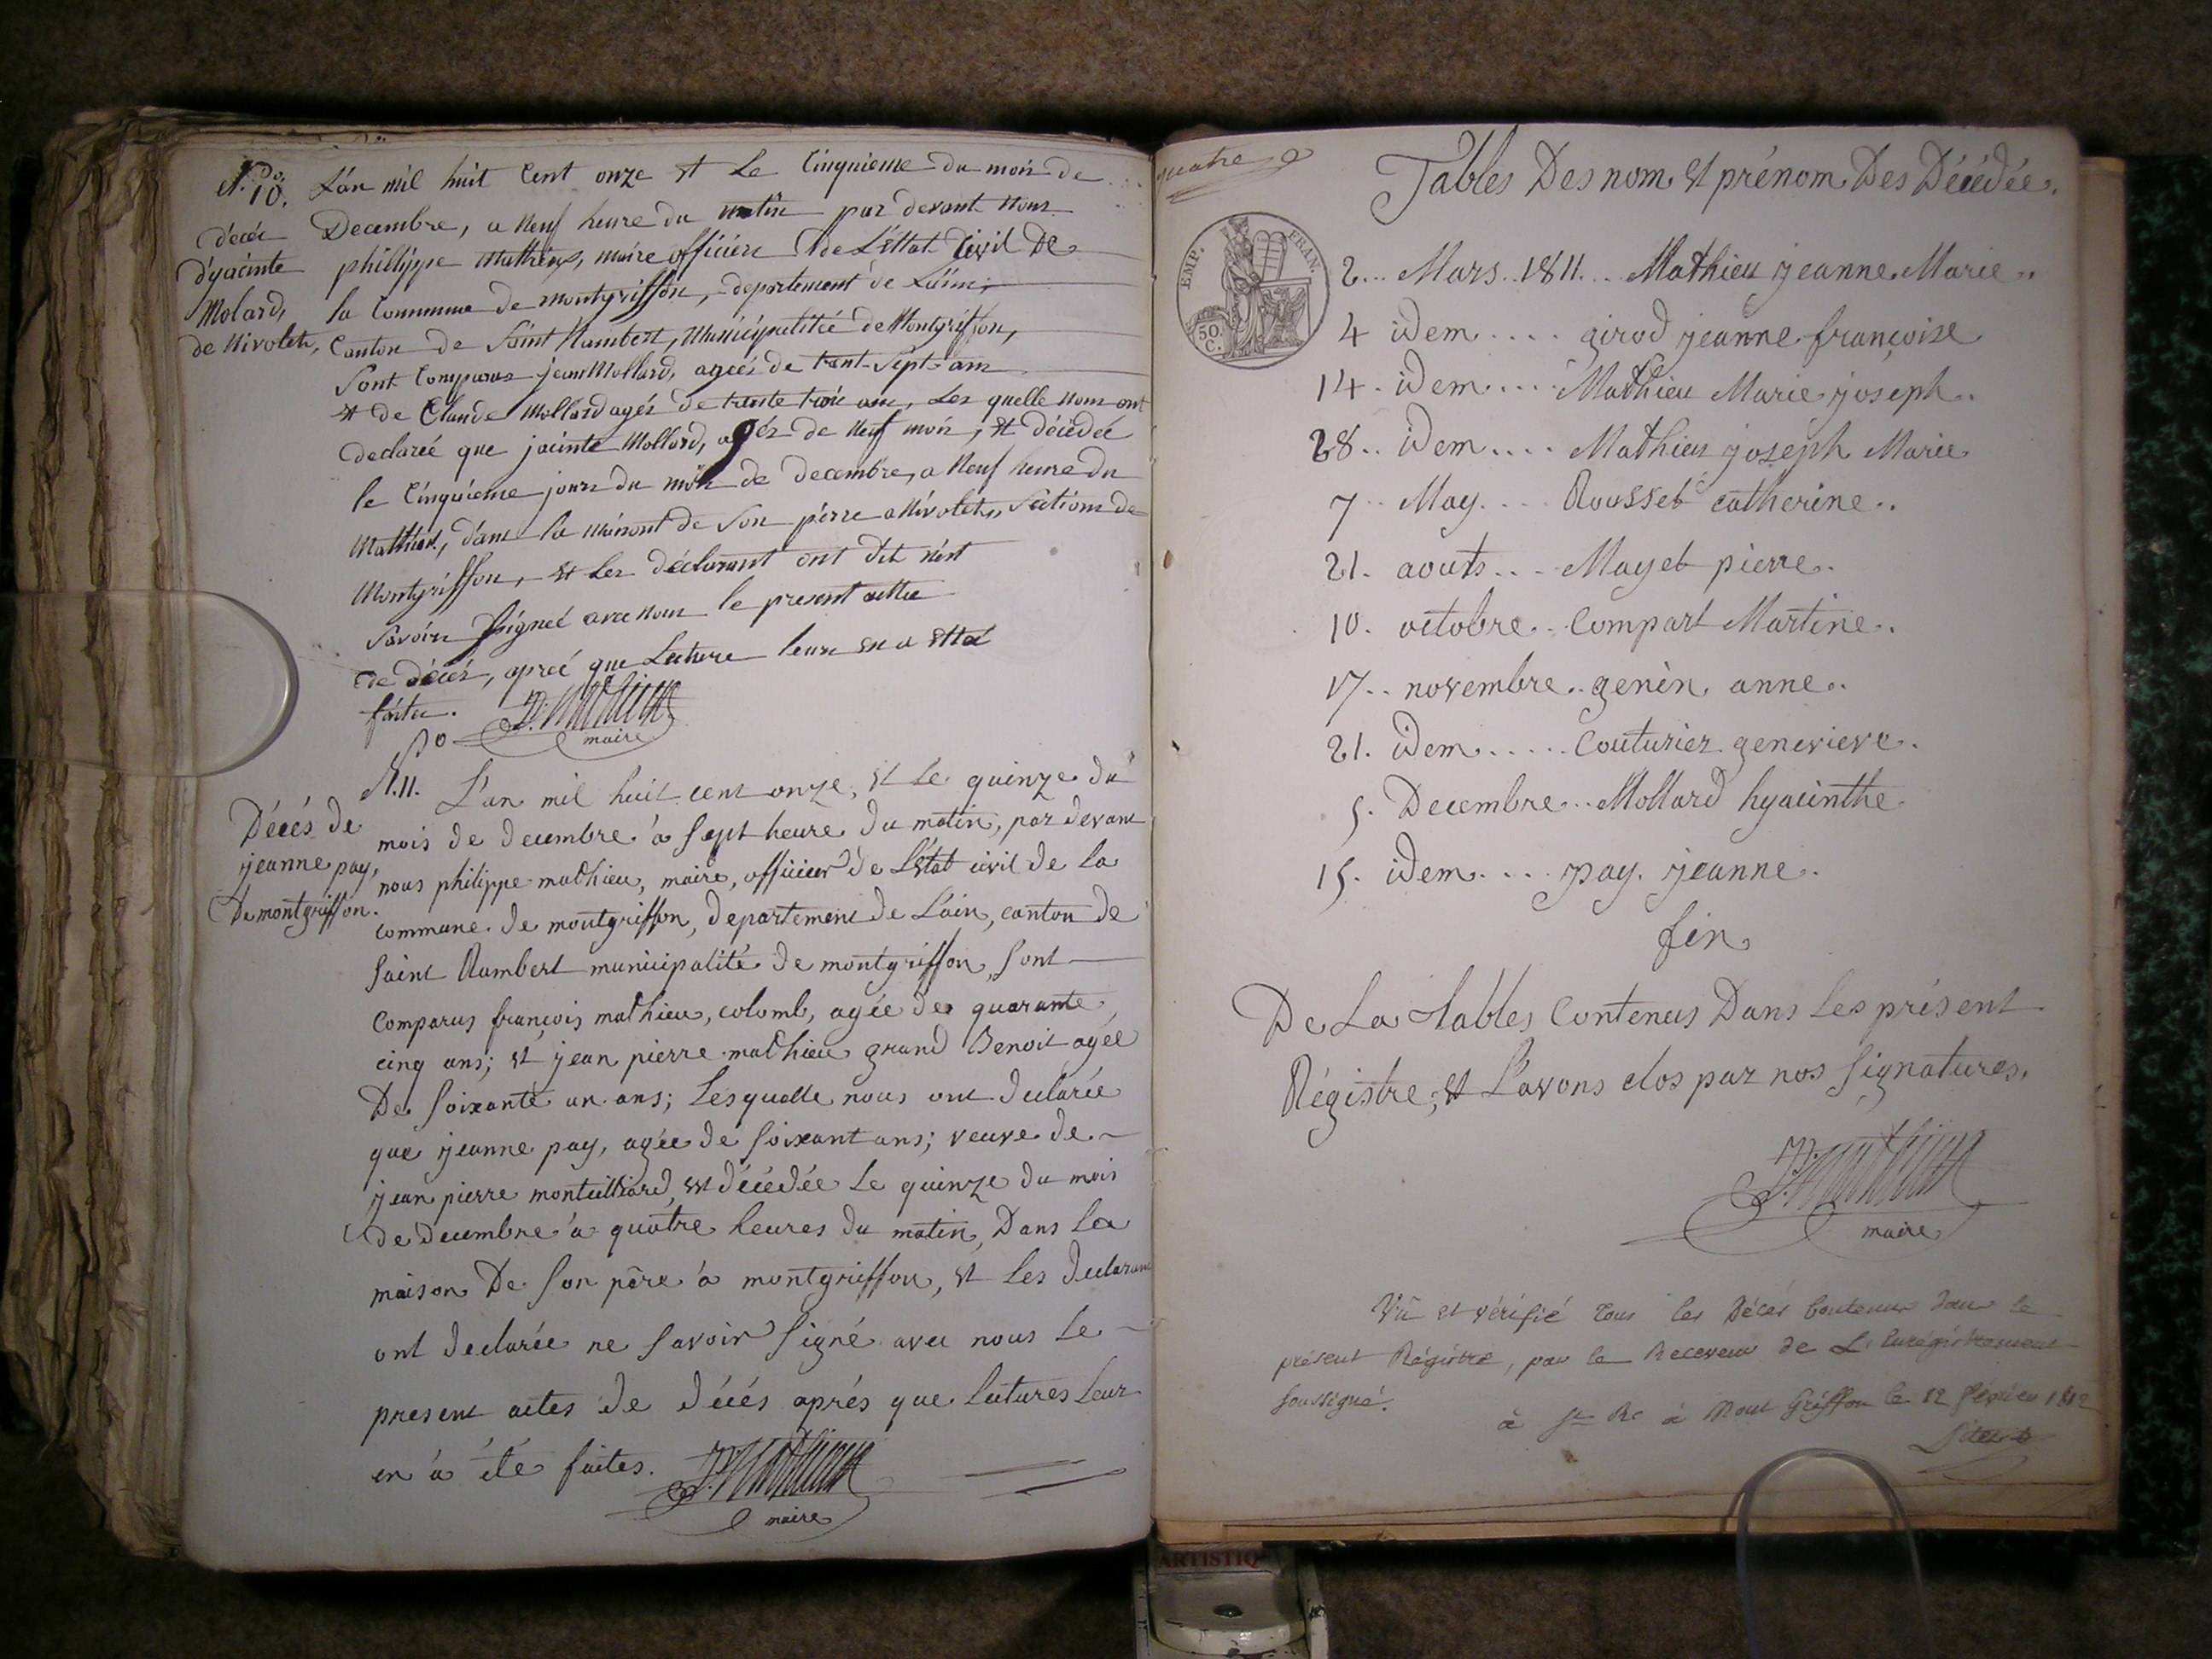 No 10.
décée
d'yacinte
Molard,
de Nivolete,
L'an mil huit Cent onze et Le Cinquieme du mois de
Decembre, a Neuf heure du matin par devant Nous
phillippe Mathieux, maire officiere de L'éttat Civil De
la Commune de montgriffon, departement de L'ain,
Canton de Saint Rambert, Municipalitée de Montgriffon,
Sont Comparus jean Mollard, ageés de trant-Sept-ans
et de Claude Mollard agés de trante trois ans, Les quelle nous ont
declareé que jacinte Mollard, agés de Neuf mois, et décédeé
le Cinquieme jours du mois de decembre, a Neuf heure du
Mattin, dans la maisont de Son pérre a Nivolete, Sections de
Montgriffon, et Les déclarant ont dit n'est
Savoire Signeé avec nous le present actte
de décés, apreé que Lecture leurs en a ettéé
faitee.
P. Mathieux
maire
No
N.11.
Décés de
jeanne pay,
De montgriffon.
L'an mil huit cent onze, et Le quinze du
mois de decembre à Sept heure du matin, par devant
nous philippe mathieu, maire, officier de L'état civil de la
commune de montgriffon, departement de L'ain, canton de
Saint Rambert municipalité de montgriffon, Sont
Comparus françois mathieu, colomb, agée de quarante
cinq ans; et jean pierre mathieu grand Benoit agée
De Soixante un ans; Lesquelle nous ont declarée
que jeanne pay, agée de Soixant ans; veuve de
jean pierre monteilliard, est décédée Le quinze du mois
de decembre à quatre heures du matin, Dans La
maison De Son père à montgriffon, et Les declarant
ont declarée ne Savoir Signé avec nous Le
present actes de décés aprés que Lectures Leur
en à été faites.
P. Mathieux
maire
quatre
EMP. FRAN.
50 C.
Tables Des nom et prénom Des Décédée.
2... Mars..1811... Mathieu jeanne Marie..
4 idem.... girod jeanne françoise
14. idem.... Mathieu Marie joseph.
28.. idem.... Mathieu joseph Marie
7.. May.... Rousset catherine..
21. aouts... Mayet pierre.
10. octobre.. Compart Martine.
17.. novembre.. genin anne..
21. idem..... Couturier genevieve.
5. Decembre.. Mollard hyacinthe.
15. idem.... pay. jeanne.
fin
De La tables Contenus Dans Les présent
Régistre, et L'avons clos par nos Signatures.
P. Mathieux
maire
Vu et vérifié tous les Décés Contenus dans le
présent Régistre, par le Receveur de L'Enregistrement
Soussigné.
à St Rt à Mont Griffon le 12 février 1812
ARTISTIQ